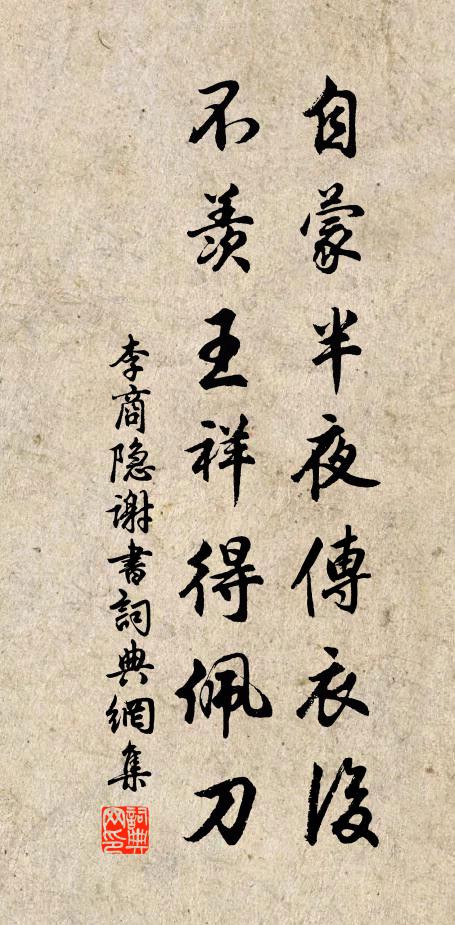 自蒙半夜傳衣後
不羨王祥得佩刀
李商隐謝書詞典網集
詞典網印